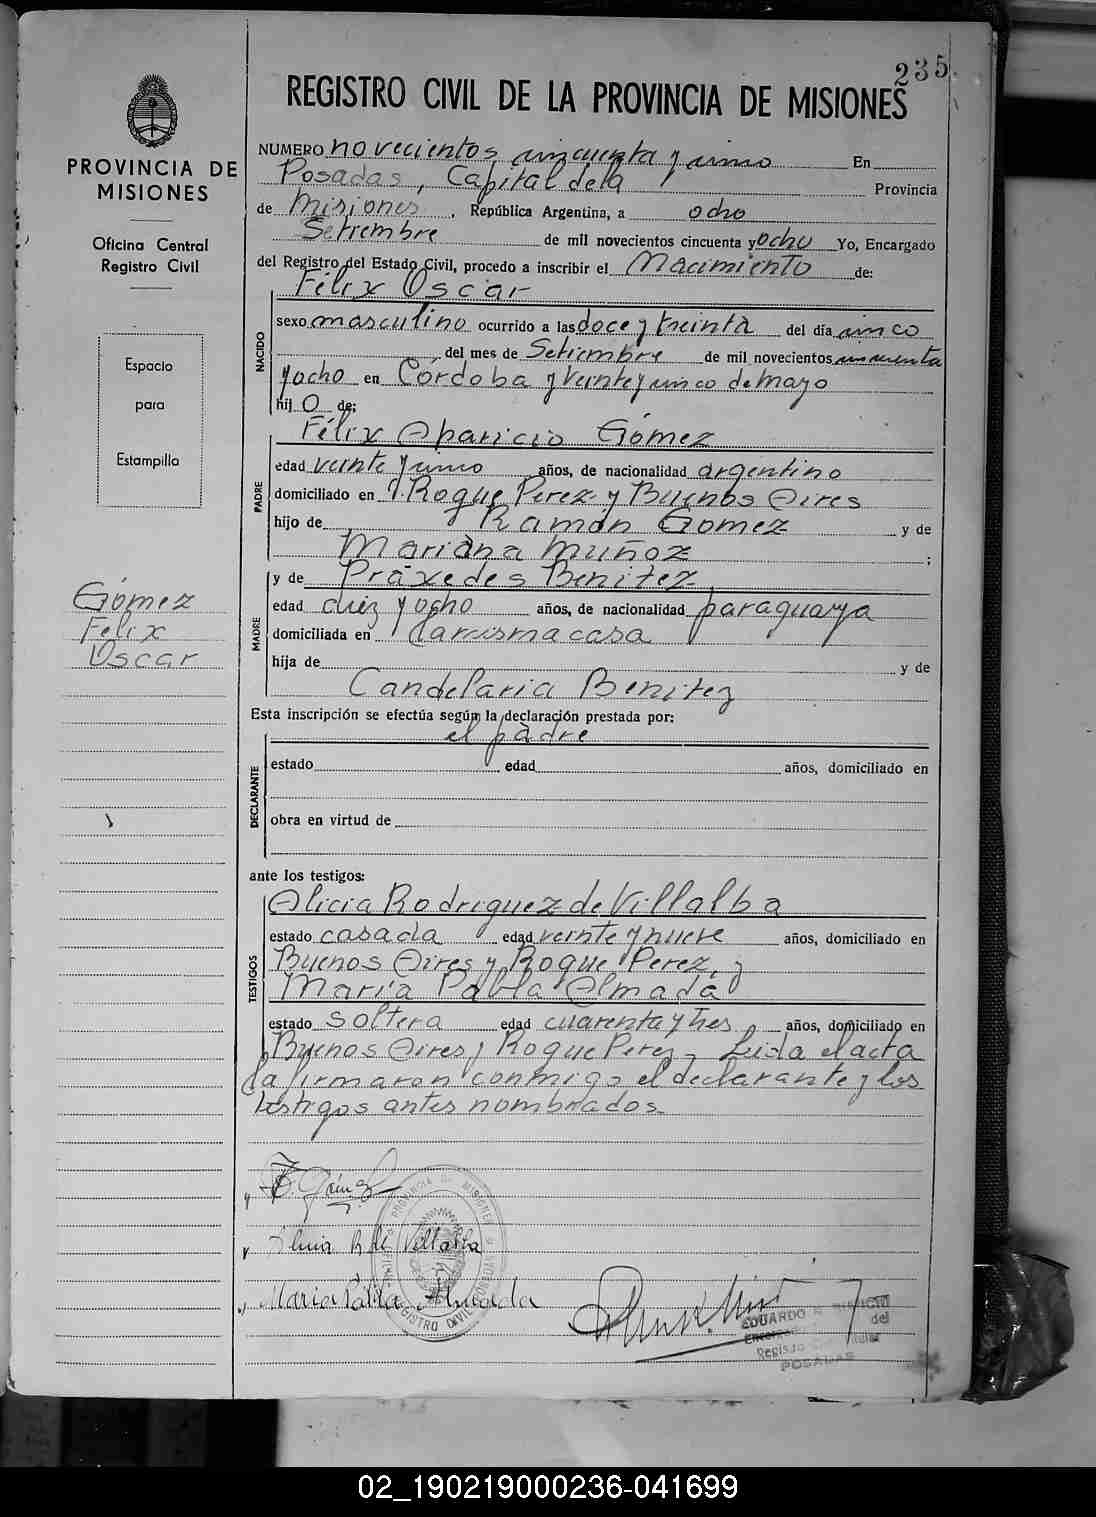 235
REGISTRO CIVIL DE LA PROVINCIA DE MISIONES
PROVINCIA DE
MISIONES
Oficina Central
Registro Civil
Espacio
para
Estampilla
Gómez
Felix
Oscar
NUMERO novecientos cincuenta y uno En
Posadas, Capital de la Provincia
de Misiones, República Argentina, a ocho
Setiembre de mil novecientos cincuenta y ocho Yo, Encargado
del Registro del Estado Civil, procedo a inscribir el Nacimiento de:
NACIDO
Félix Oscar
sexo masculino ocurrido a las doce y treinta del día cinco
del mes de Setiembre de mil novecientos cincuenta
y ocho en Córdoba y veinte y cinco de mayo
hijo de:
PADRE
Félix Aparicio Gómez
edad veinte y uno años, de nacionalidad argentino
domiciliado en Roque Perez y Buenos Aires
hijo de Ramón Gomez y de
Mariana Muñoz ;
MADRE
y de Práxedes Benitez
edad diez y ocho años, de nacionalidad paraguaya
domiciliada en la misma casa
hija de y de
Candelaria Benitez
Esta inscripción se efectúa según la declaración prestada por:
el padre
DECLARANTE
estado edad años, domiciliado en
obra en virtud de
ante los testigos:
TESTIGOS
Alicia Rodriguez de Villalba
estado casada edad veinte y nueve años, domiciliado en
Buenos Aires y Roque Perez, y
María Pabla Almada
estado soltera edad cuarenta y tres años, domiciliado en
Buenos Aires y Roque Perez - Leida el acta
la firmaron conmigo el declarante y los
testigos antes nombrados.
F. Gómez
Alicia R de Villalba
Maria Pabla Almada
PROVINCIA DE MISIONES
REGISTRO CIVIL
EDUARDO
del
POSADAS
02_190219000236-041699